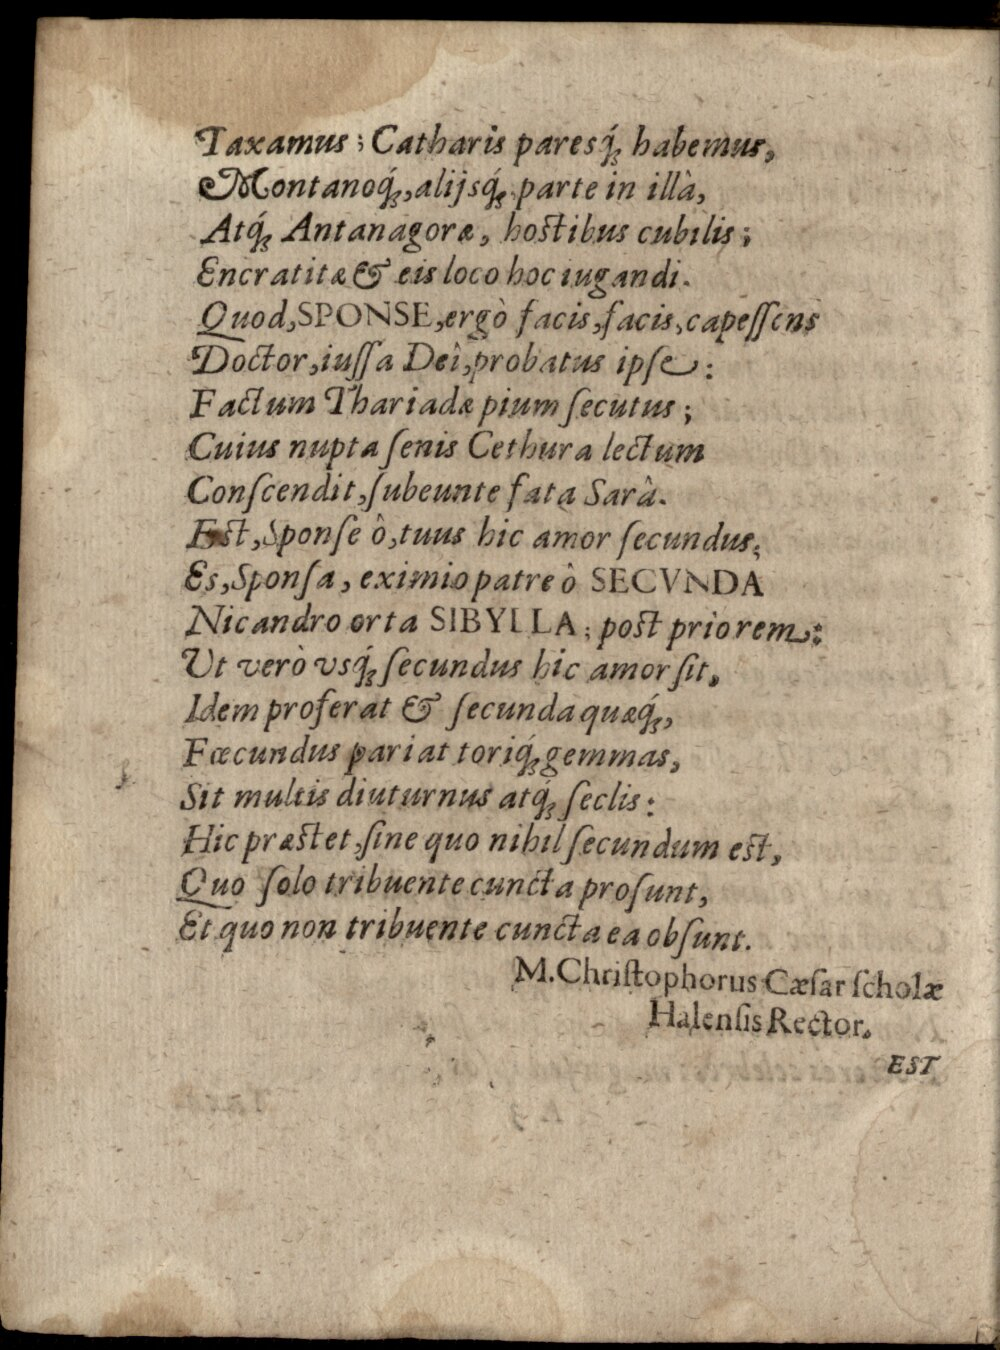 Taxamus; Catharis paresq́ꝫ habemus,
Montanoq́ꝫ, alijsq́ꝫ parte in illà,
Atq́ꝫ Antanagoræ, hostibus cubilis;
Encratitæ & eis loco hoc iugandi.
Quod, SPONSE, ergò facis, facis, capeſſens
Doctor, iuſſa Deî, probatus ipſe:
Factum Thariadæ pium ſecutus;
Cuius nupta ſenis Cethura lectum
Conſcendit, ſubeunte fata Sarâ.
Est, Sponſe ô, tuus hic amor ſecundus,
Es, Sponſa, eximio patre ô SECVNDA
Nicandro orta SIBYLLA; post priorem:
Ut verò vsq́ꝫ ſecundus hic amor ſit,
Idem proferat & ſecunda quæq́ꝫ,
Fœcundus pariat toriq́ꝫ gemmas,
Sit multis diuturnus atq́ꝫ ſeclis:
Hic præstet, ſine quo nihil ſecundum est,
Quo ſolo tribuente cuncta proſunt,
Et quo non tribuente cuncta ea obſunt.
M. Chriſtophorus Cæſar ſcholæ
Halenſis Rector.
EST